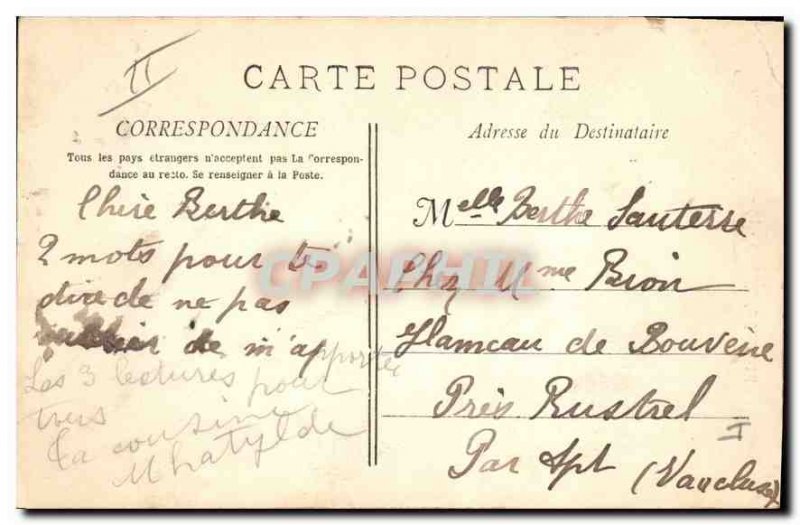 II
CARTE POSTALE
CORRESPONDANCE
Tous les pays étrangers n'acceptent pas La Correspon-
dance au recto. Se renseigner à la Poste.
Chère Berthe
2 mots pour te
dire de ne pas
oublier de m'apporter
Les 3 lectures pour
tous
Ta cousine
Mhatylde
Adresse du Destinataire
Melle Berthe Sauterre
Chez Mme Bion
Hameau de Bouvène
Près Rustrel
Par Apt (Vaucluse)
I
CPAPHIL